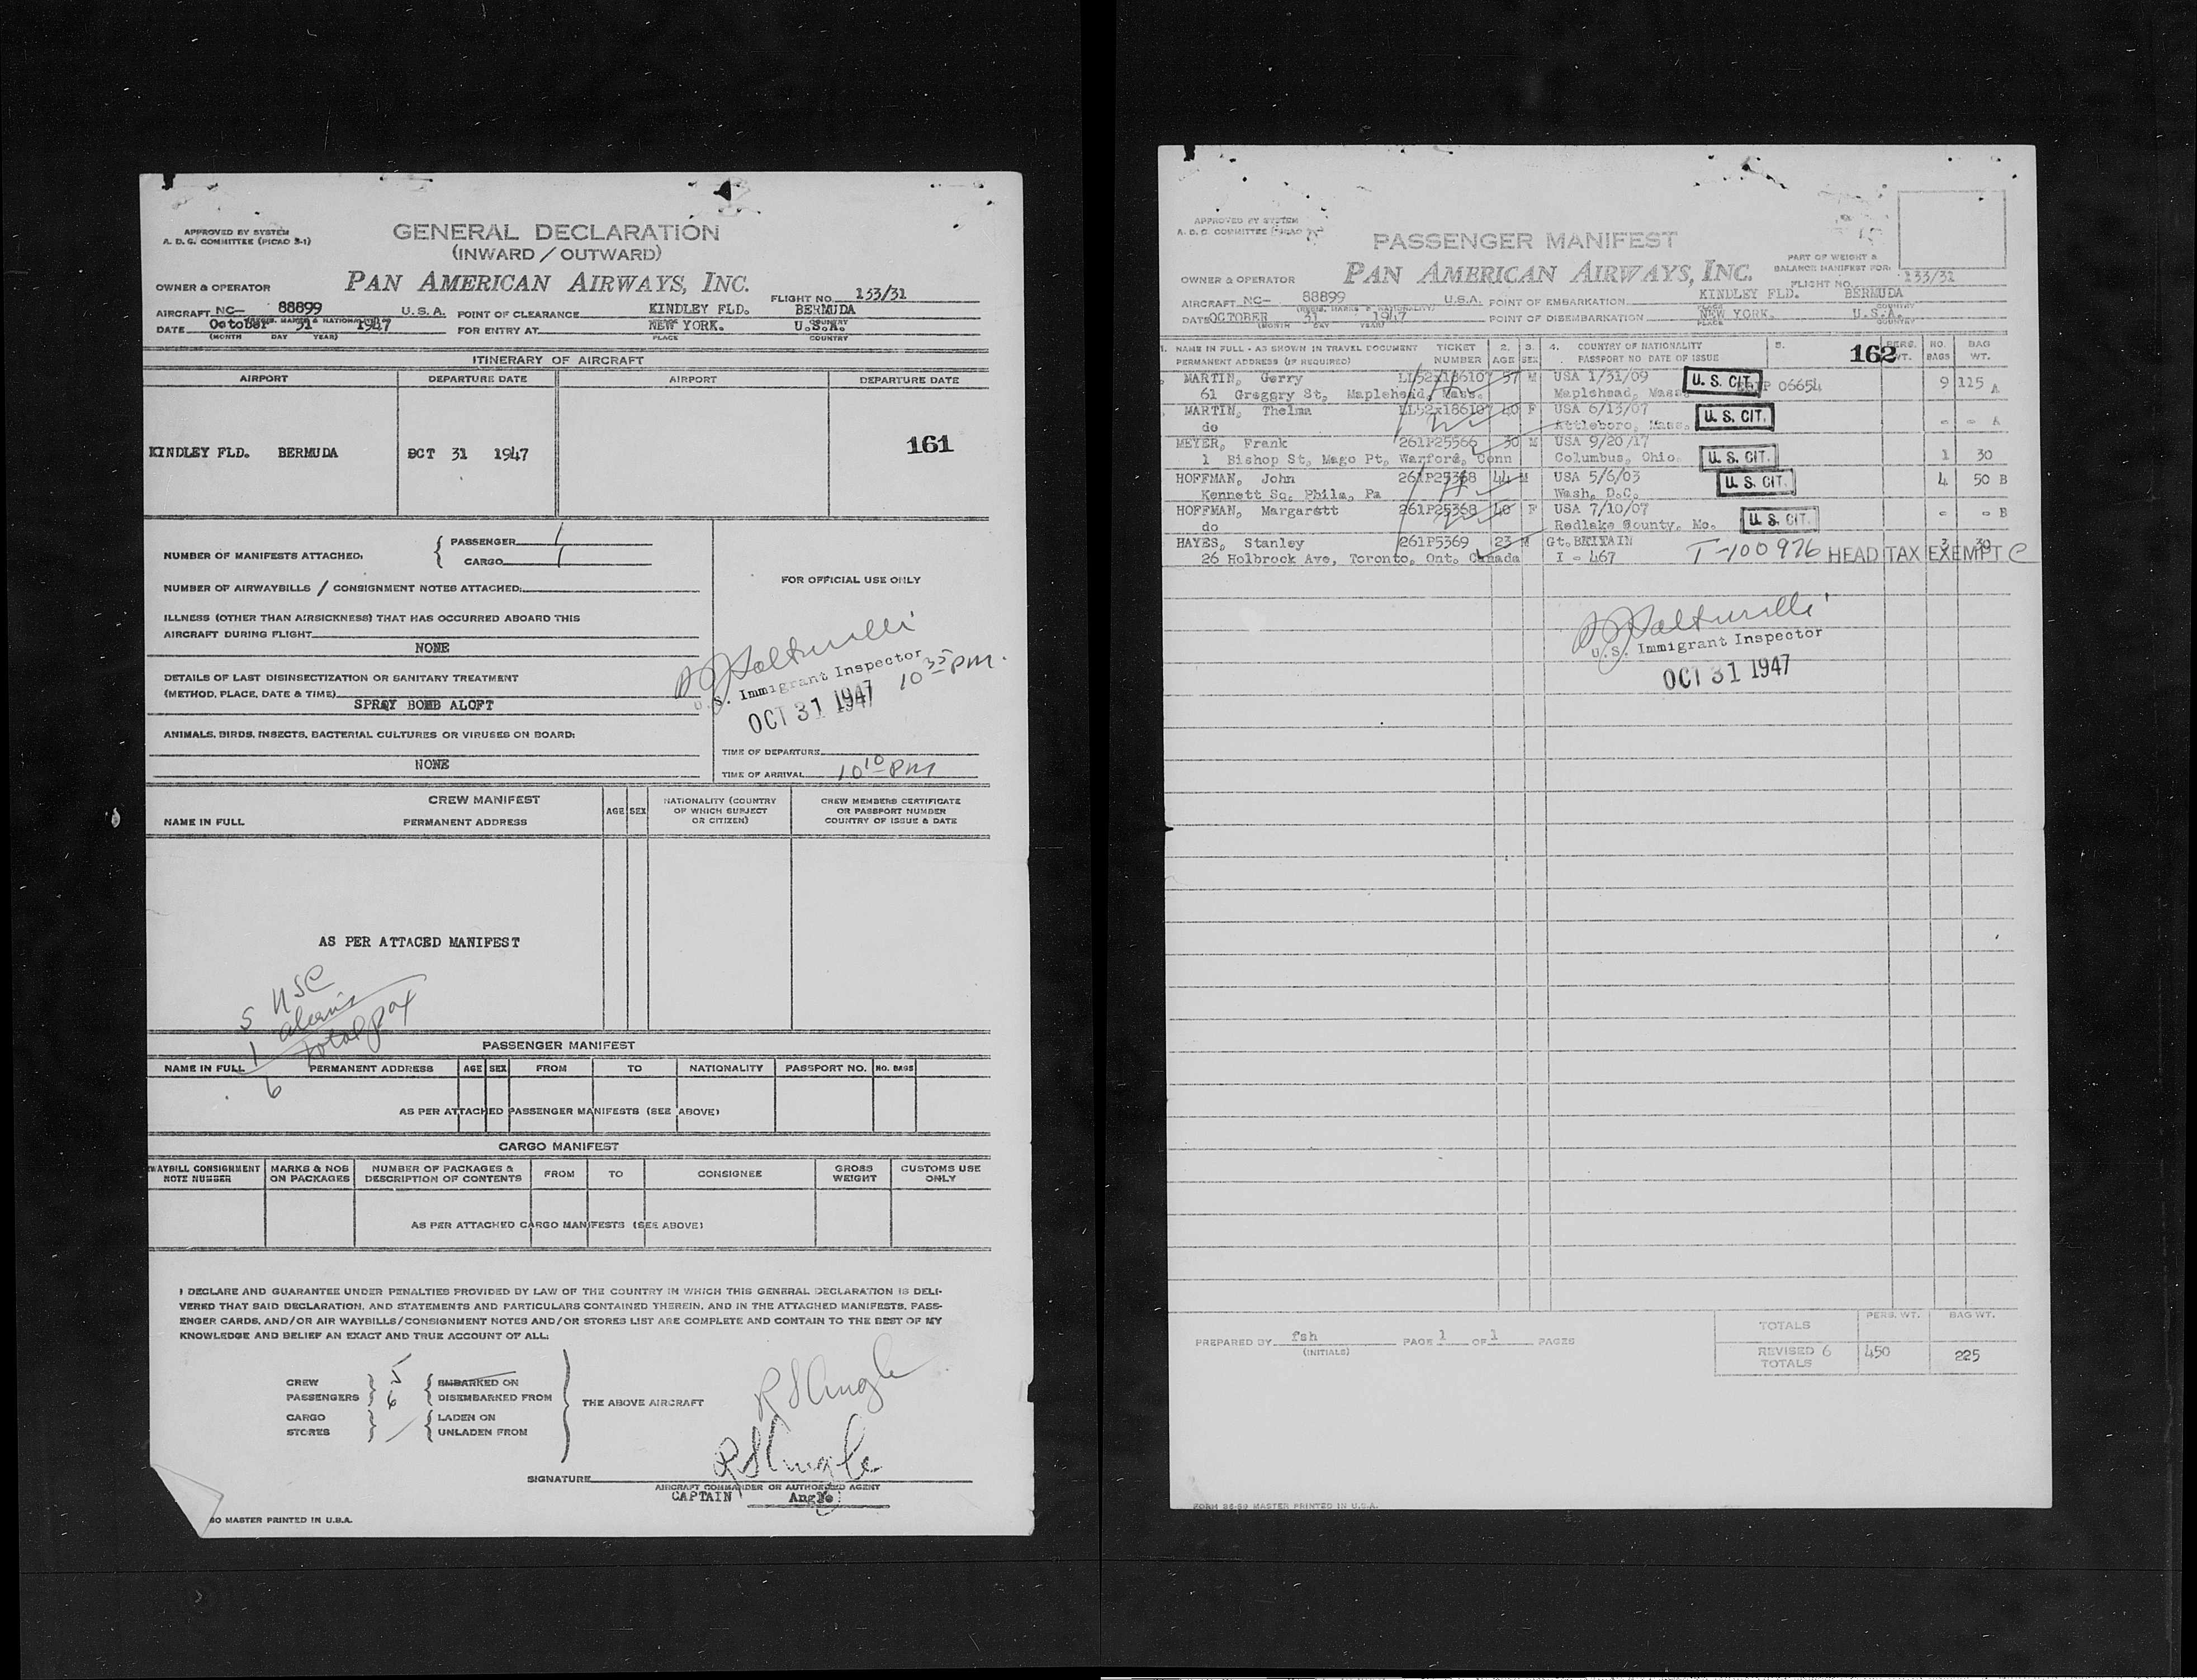 APPROVED BY SYSTEM
A. D. G. COMMITTEE (PICAO 3-1)
GENERAL DECLARATION
(INWARD / OUTWARD)
PAN AMERICAN AIRWAYS, INC.
OWNER & OPERATOR
FLIGHT NO. 153/31
AIRCRAFT NC- 88899 U.S.A. POINT OF CLEARANCE KINDLEY FLD. BERMUDA
DATE October 31 1947 FOR ENTRY AT NEW YORK. U.S.A.
(MONTH DAY YEAR) PLACE COUNTRY
ITINERARY OF AIRCRAFT
AIRPORT DEPARTURE DATE AIRPORT DEPARTURE DATE
161
KINDLEY FLD. BERMUDA OCT 31 1947
NUMBER OF MANIFESTS ATTACHED: PASSENGER 1
CARGO 1
NUMBER OF AIRWAYBILLS / CONSIGNMENT NOTES ATTACHED:
FOR OFFICIAL USE ONLY
ILLNESS (OTHER THAN AIRSICKNESS) THAT HAS OCCURRED ABOARD THIS
AIRCRAFT DURING FLIGHT
NONE
DETAILS OF LAST DISINSECTIZATION OR SANITARY TREATMENT
(METHOD, PLACE, DATE & TIME)
SPRAY BOMB ALOFT
U.S. Immigrant Inspector
OCT 31 1947 10 35 PM.
ANIMALS, BIRDS, INSECTS, BACTERIAL CULTURES OR VIRUSES ON BOARD:
NONE
TIME OF DEPARTURE
TIME OF ARRIVAL 10 10 PM
CREW MANIFEST
NAME IN FULL PERMANENT ADDRESS AGE SEX
NATIONALITY (COUNTRY
OF WHICH SUBJECT
OR CITIZEN)
CREW MEMBERS CERTIFICATE
OR PASSPORT NUMBER
COUNTRY OF ISSUE & DATE
AS PER ATTACED MANIFEST
5 USC
1 aliens
6 Total pax
PASSENGER MANIFEST
NAME IN FULL PERMANENT ADDRESS AGE SEX FROM TO NATIONALITY PASSPORT NO. NO. BAGS
AS PER ATTACHED PASSENGER MANIFESTS (SEE ABOVE)
CARGO MANIFEST
WAYBILL CONSIGNMENT
NOTE NUMBER
MARKS & NOS
ON PACKAGES
NUMBER OF PACKAGES &
DESCRIPTION OF CONTENTS
FROM TO CONSIGNEE
GROSS
WEIGHT
CUSTOMS USE
ONLY
AS PER ATTACHED CARGO MANIFESTS (SEE ABOVE)
I DECLARE AND GUARANTEE UNDER PENALTIES PROVIDED BY LAW OF THE COUNTRY IN WHICH THIS GENERAL DECLARATION IS DELI-
VERED THAT SAID DECLARATION, AND STATEMENTS AND PARTICULARS CONTAINED THEREIN, AND IN THE ATTACHED MANIFESTS, PASS-
ENGER CARDS, AND/OR AIR WAYBILLS/CONSIGNMENT NOTES AND/OR STORES LIST ARE COMPLETE AND CONTAIN TO THE BEST OF MY
KNOWLEDGE AND BELIEF AN EXACT AND TRUE ACCOUNT OF ALL:
CREW 5 EMBARKED ON
PASSENGERS 6 DISEMBARKED FROM
THE ABOVE AIRCRAFT
CARGO LADEN ON
STORES UNLADEN FROM
R S Angle
R S Angle
SIGNATURE
AIRCRAFT COMMANDER OR AUTHORIZED AGENT
CAPTAIN Angle
80 MASTER PRINTED IN U.S.A.
APPROVED BY SYSTEM
A. D. G. COMMITTEE
PASSENGER MANIFEST
PART OF WEIGHT &
BALANCE MANIFEST FOR:
OWNER & OPERATOR
PAN AMERICAN AIRWAYS, INC.
FLIGHT NO. 153/31
AIRCRAFT NC- 88899 U.S.A. POINT OF EMBARKATION KINDLEY FLD. BERMUDA
(REGIS. MARKS & NATIONALITY) PLACE COUNTRY
DATE OCTOBER 31 1947 POINT OF DISEMBARKATION NEW YORK. U.S.A.
(MONTH DAY YEAR) PLACE COUNTRY
1. NAME IN FULL - AS SHOWN IN TRAVEL DOCUMENT TICKET 2. 3. 4. COUNTRY OF NATIONALITY 5. PERS. NO. BAG
PERMANENT ADDRESS (IF REQUIRED) NUMBER AGE SEX PASSPORT NO DATE OF ISSUE 162 WT. BAGS WT.
MARTIN, Gerry LL52x186107 57 M USA 1/31/09 U. S. CIT. 06654 9 115 A
61 Gregory St, Maplehead, Mass. Maplehead, Mass
MARTIN, Thelma LL52x186107 40 F USA 6/13/07 U. S. CIT. - - A
do Attleboro, Mass.
MEYER, Frank 261P25366 30 M USA 9/20/17 U. S. CIT.
1 Bishop St, Mago Pt, Warford, Conn Columbus, Ohio. 1 30
HOFFMAN, John 261P25368 44 M USA 5/6/03 U. S. CIT. 4 50 B
Kennett Sq. Phila, Pa Wash, D.C.
HOFFMAN, Margarett 261P25368 40 F USA 7/10/07 U. S. CIT. - - B
do Redlake County, Mo.
HAYES, Stanley 261P5369 23 M Gt. BRITAIN 3 30
26 Holbrook Ave, Toronto, Ont. Canada I - 467 T-100976 HEAD TAX EXEMPT C
U.S. Immigrant Inspector
OCT 31 1947
TOTALS PERS. WT. BAG WT.
PREPARED BY fsh PAGE 1 OF 1 PAGES
(INITIALS)
REVISED 6 450 225
TOTALS
FORM 86-59 MASTER PRINTED IN U.S.A.